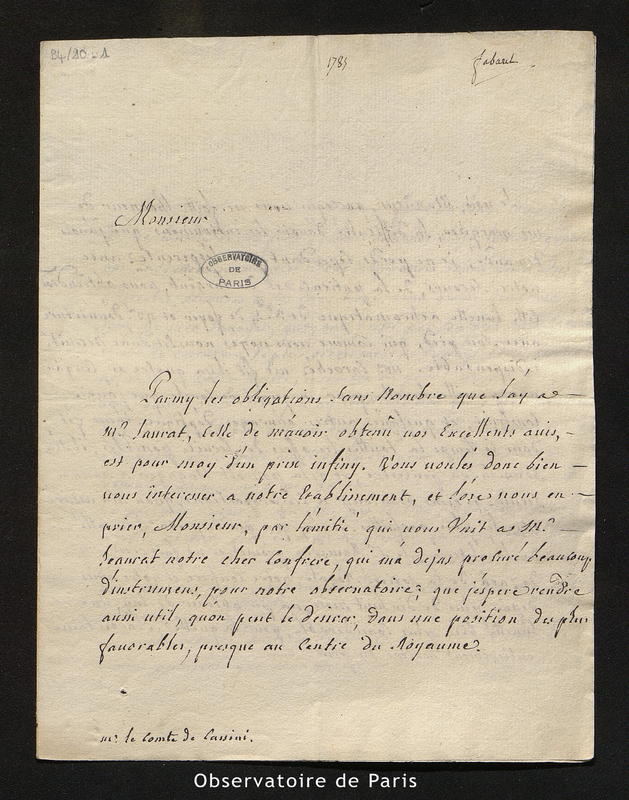 B4/10-1
1785
fabarel
Monsieur
OBSERVATOIRE
DE
PARIS
Parmy les obligations sans Nombre que J'ay a
mr. Jaurat, celle de m'avoir obtenü vos Excellents avis,
est pour moy d'un prix infiny. Vous voulés donc bien
vous interesser a notre Etablissement, et J'ose vous en
prier, Monsieur, par l'amitié qui vous Unit a Mr.
Jeaurat notre cher Confrere, qui m'a dejas procuré beaucoup
d'instrumens, pour notre observatoire; que j'espere rendre
aussi util, qu'on peut le desirer, dans une position des plus
favorables, presque au Centre du Royaume.
mr. le Comte de Cassini.
Observatoire de Paris